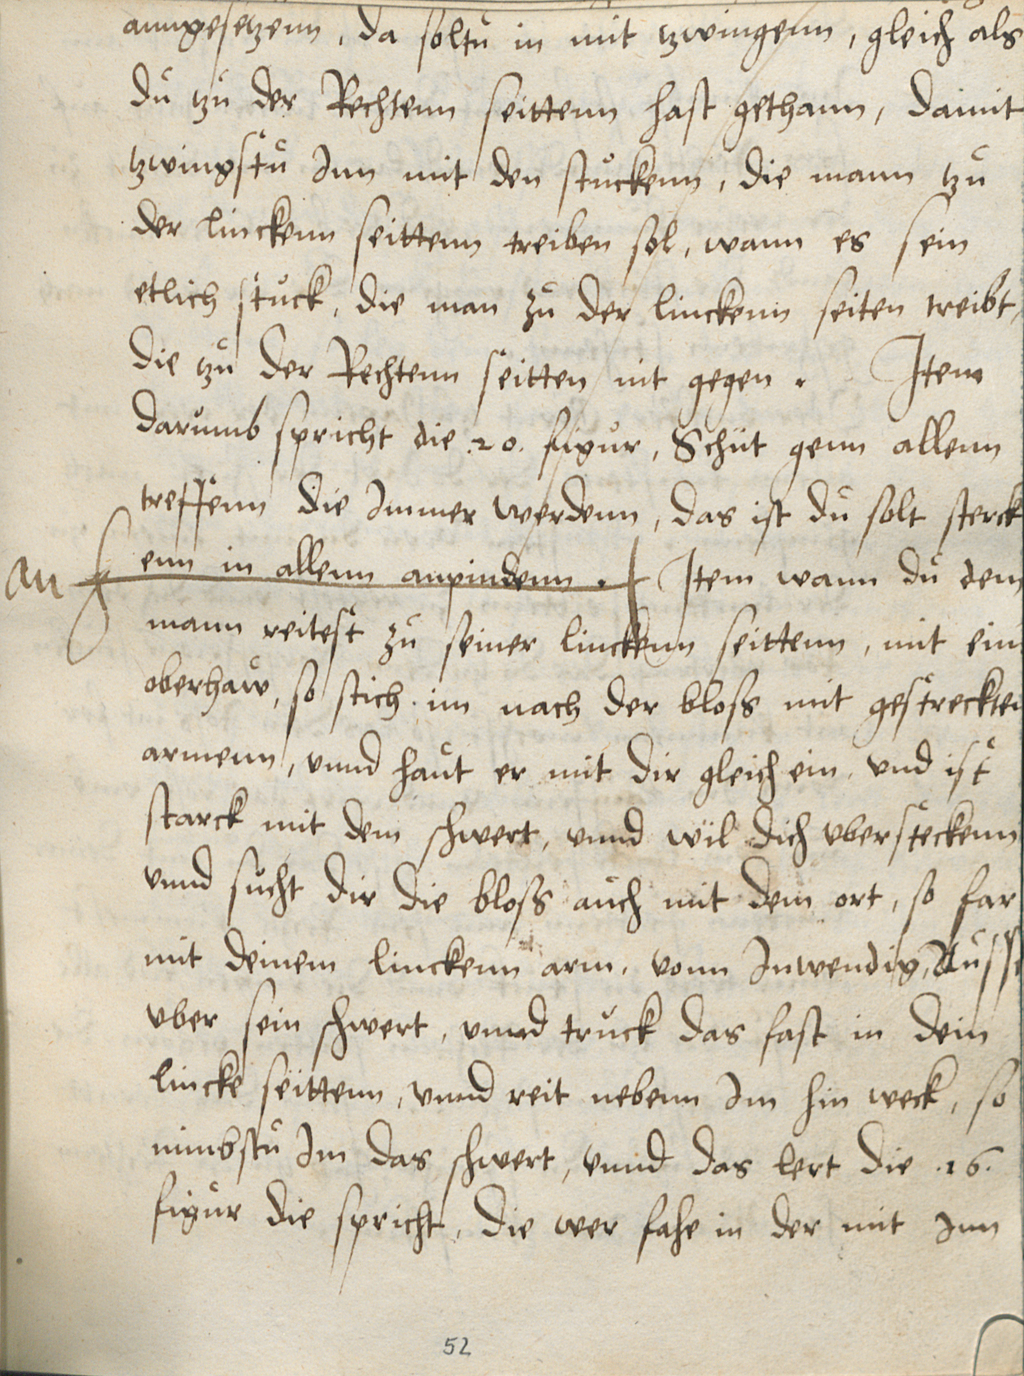 anngesetzenn, da soltu in mit tzwingenn, gleich als
du tzu der Rechtenn seittenn hast gethann, damit
tzwingstu Inn mit den stuckenn, die mann tzu
der linckenn seittenn treiben sol, wann es sein
etlich stuck, die man zu der linckenn seiten treibt,
die tzu der Rechtenn seitten nit gegen. Item
darumb spricht die .20. figur, Schüt genn allenn
treffenn die Immer werdenn, das ist du solt sterck
an enn in allenn anpindenn. Item wann du dem
mann reitest zu seiner linckenn seittenn, mit ein
oberhaw, so stich im nach der bloss mit gestreckten
armenn, vnnd haut er mit dir gleich ein, vnd ist
starck mit dem schwert, vnnd wil dich vbersteckenn
vnnd sucht dir die bloss auch mit dem ort, so far
mit deinem linckenn arm, vonn Inwendig, Ausse
vber sein schwert, vnnd truck das fast in dein
lincke seittenn, vnnd reit nebenn Im hin weck, so
nimbstu Im das schwert, vnnd das lert die .16.
figur die spricht, die wer fahe in der mit Inn
52